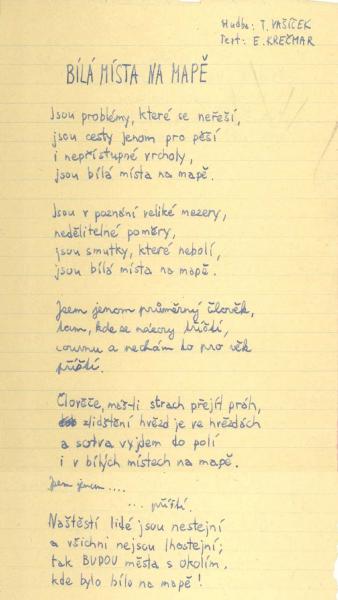 Hudba: T. VAŠÍČEK
Text: E. KREČMAR
BÍLÁ MÍSTA NA MAPĚ
Jsou problémy, které se neřeší,
jsou cesty jenom pro pěší
i nepřístupné vrcholy,
jsou bílá místa na mapě.
Jsou v poznání veliké mezery,
nedělitelné poměry,
jsou smutky, které nebolí,
jsou bílá místa na mapě.
Jsem jenom průměrný člověk,
tam, kde se názory tříští,
couvnu a nechám to pro věk
příští.
Člověče, máš-li strach přejít práh,
zlidštění hvězd je ve hvězdách
a sotva vyjdem do polí
i v bílých místech na mapě.
Jsem jenom....
... příští.
Naštěstí lidé jsou nestejní
a všichni nejsou lhostejní;
tak BUDOU města s okolím,
kde bylo bílo na mapě!